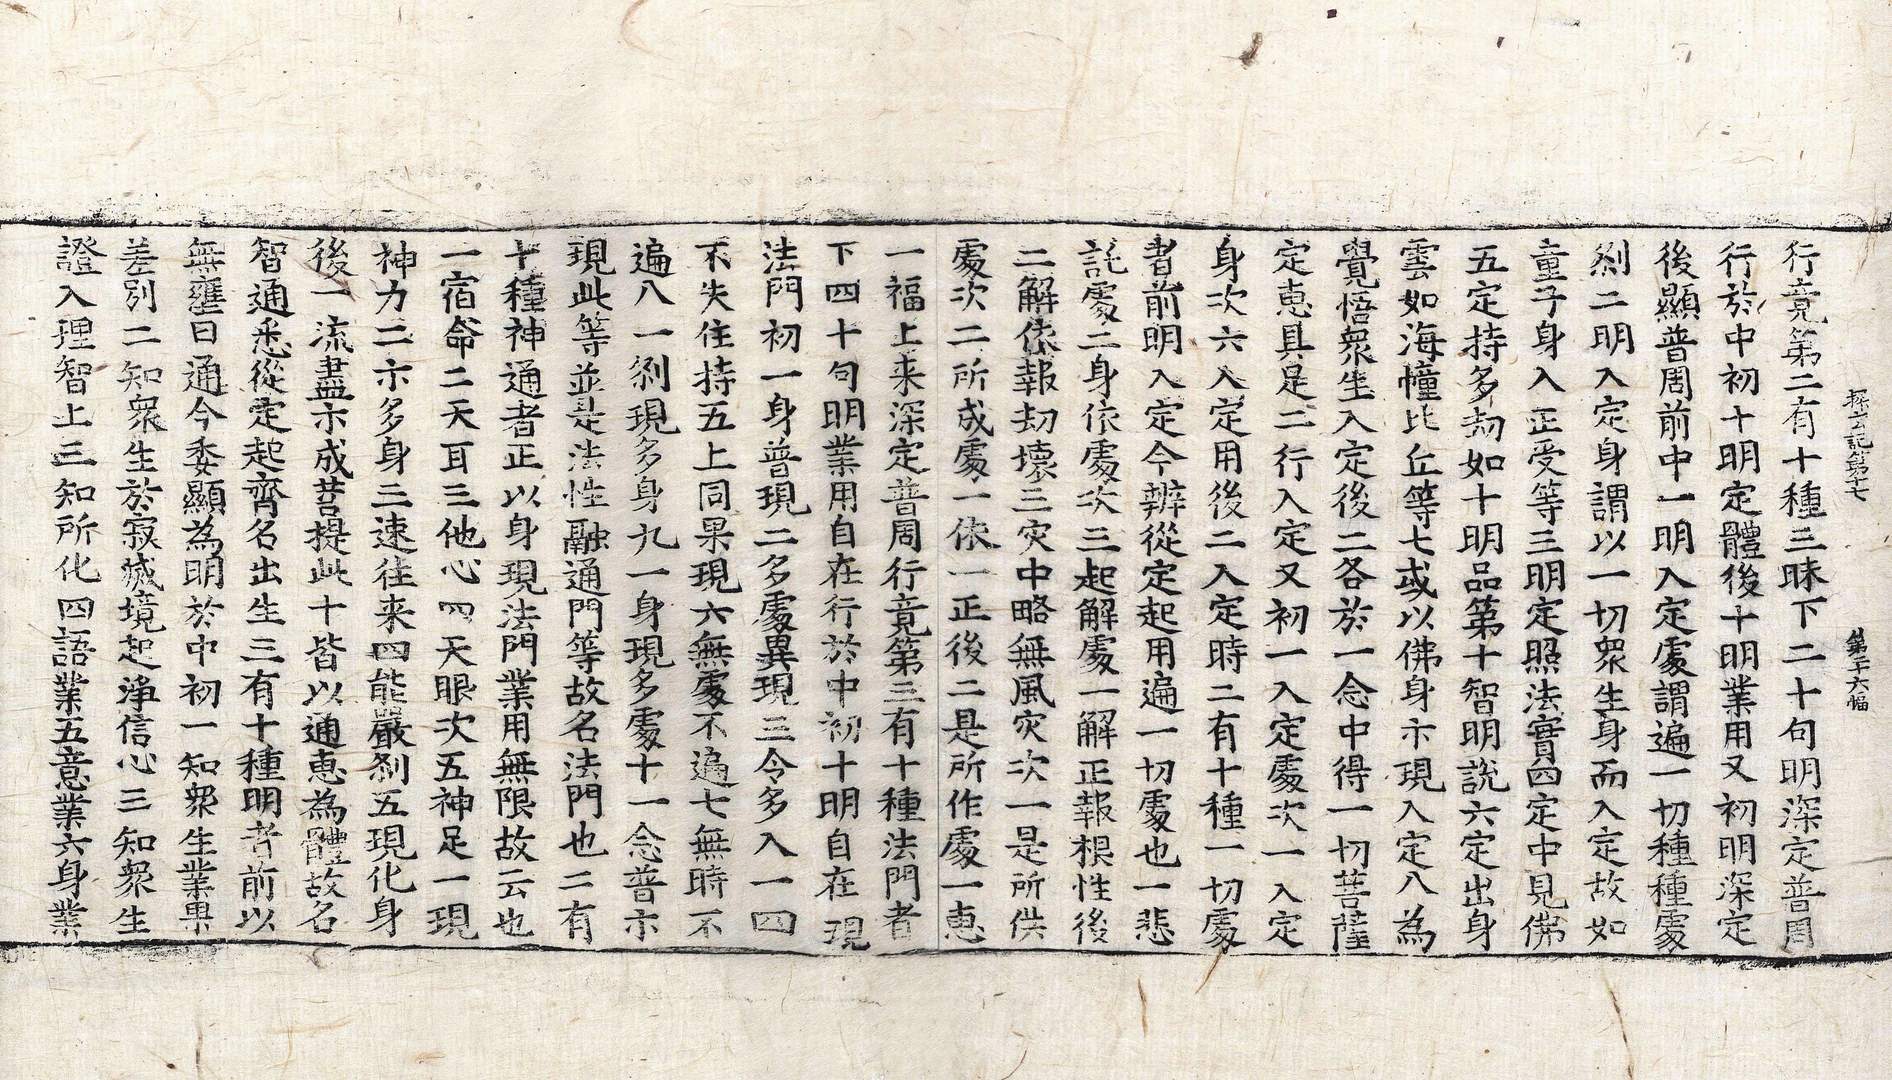 探玄記第十七 第二十六幅
行竟第二有十種三昧下二十句明深定普周
行於中初十明定體後十明業用又初明深定
後顯普周前中一明入定處謂遍一切種種處
刹二明入定身謂以一切眾生身而入定故如
童子身入正受等三明定照法實四定中見佛
五定持多劫如十明品第十智明說六定出身
雲如海幢比丘等七或以佛身示現入定八為
覺悟眾生入定後二各於一念中得一切菩薩
定惠具足二行入定又初一入定處次一入定
身次六入定用後二入定時二有十種一切處
者前明入定今辨從定起用遍一切處也一悲
託處二身依處次三起解處一解正報根性後
二解依報劫壞三灾中略無風灾次一是所供
處次二所成處一依一正後二是所作處一惠
一福上来深定普周行竟第三有十種法門者
下四十句明業用自在行於中初十明自在現
法門初一身普現二多處異現三令多入一四
不失住持五上同果現六無處不遍七無時不
遍八一刹現多身九一身現多處十一念普示
現此等並是法性融通門等故名法門也二有
十種神通者正以身現法門業用無限故云也
一宿命二天耳三他心四天眼次五神足一現
神力二示多身三速往来四能嚴刹五現化身
後一流盡示成菩提此十皆以通惠為體故名
智通悉從定起齊名出生三有十種明者前以
無壅曰通今委顯為明於中初一知眾生業果
差別二知眾生於寂滅境起淨信心三知眾生
證入理智上三知所化四語業五意業六身業